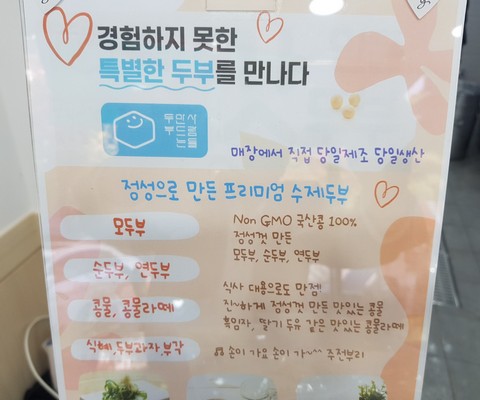 경험하지 못한
특별한 두부를 만나다
두부 만드는 사람들
매장에서 직접 당일제조 당일생산
정성으로 만든 프리미엄 수제두부
모두부
Non GMO 국산콩 100%
정성껏 만든
모두부, 순두부, 연두부
순두부, 연두부
식사 대용으로도 만점!
콩물, 콩물라떼
진~하게 정성껏 만든 맛있는 콩물
흑임자, 딸기 두유 같은 맛있는 콩물라떼
식혜,두부과자,부각
손이 가요 손이 가~^^ 주전부리